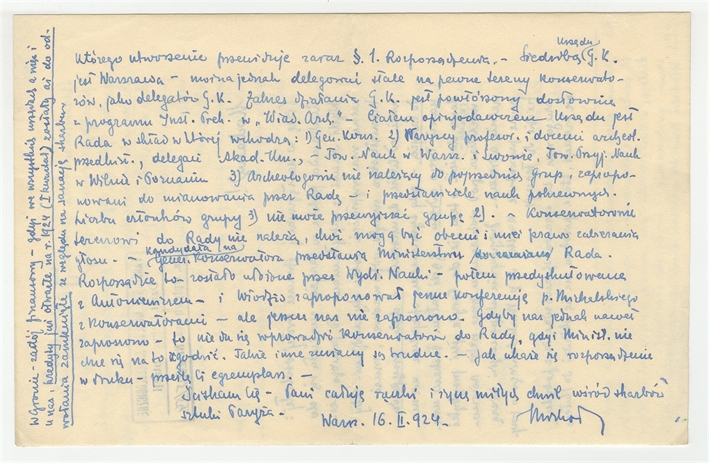 którego utworzenie przewiduje zaraz §. 1. Rozporządzenia. – Siedzibą Urzędu G. K.
jest Warszawa – można jednak delegować stale na pewne tereny konserwato-
rów, jako delegatów G. K. Zakres działania G. K. jest powtórzony dosłownie
z programu Inst. Preh. w „Wiad. Arch.” – Ciałem opinjodawczem Urzędu jest
Rada w skład której wchodzą: 1) Gen. Kons. 2) Wszyscy profesor. i docenci archeol.
przedhist., delegaci Akad. Um., – Tow. Nauk w Warsz. i Lwowie, Tow. Przyj. Nauk
w Wilnie i Poznaniu 3) Archeologowie nie należący do poprzednich grup, zapropo-
nowani do mianowania przez Radę – i przedstawiciele nauk pokrewnych.
Liczba członków grupy 3) nie może przewyższać grupę 2). – Konserwatorowie
terenowi do Rady nie należą, choć mogą być obecni i mieć prawo zabierania
głosu. – Kandydata na Gener. Konserwatora przedstawia Ministerstwu Rada.
Rozporządze to zostało ułożone przez Wydz. Nauki – potem przedyskutowane
z Antoniewiczem – i Włodzio zaproponował jemu konferencję p. Michalskiego
z Konserwatorami – ale jeszcze nas nie zaproszono. Gdyby nas jednak nawet
zaproszono – to nie da się wprowadzić Konserwatorów do Rady, gdyż Minist. nie
chce się na to zgodzić. Także inne zmiany są trudne. – Jak ukaże się rozporządzenie
w druku – prześlę Ci egzemplarz. –
Ściskam Cię – Pani całuję rączki i życzę miłych chwil wśród skarbów
sztuki Paryża –
Warsz. 16. II. 924. –
w Gronie – zastój finansowy – gdyż we wszystkich urzędach a więc i
u nas, kredyty już otwarte na r. 1924 (I kwartał) zostały aż do od-
wołania zamknięte ze względu na sanację skarbu.